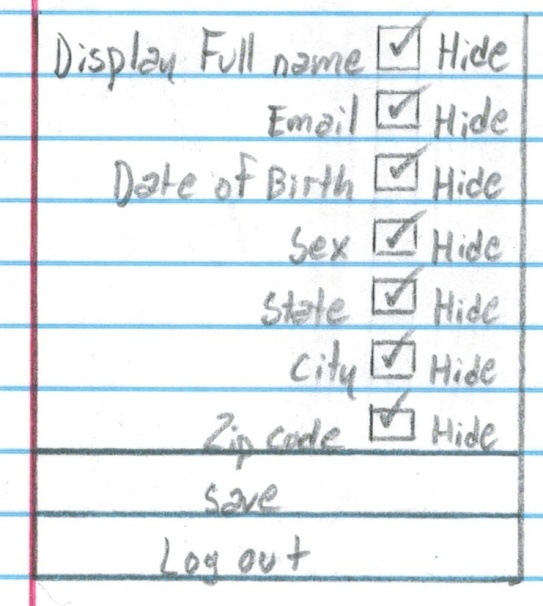 Display Full name ☑ Hide
Email ☑ Hide
Date of Birth ☑ Hide
Sex ☑ Hide
State ☑ Hide
City ☑ Hide
Zip code ☑ Hide
Save
Log out